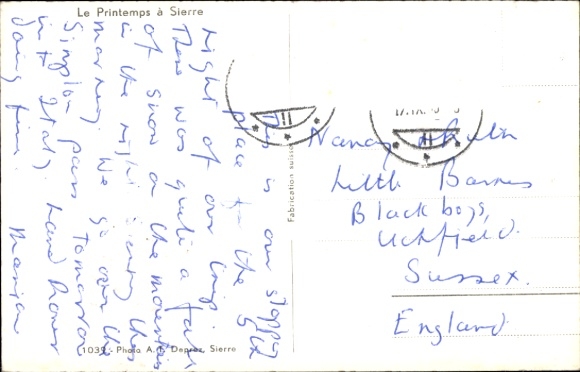 Le Printemps à Sierre
This is our stopping
place for the 5th
night of our trip.
There was quite a fall
of snow on the mountains
in the night
morning. We go over the
Simplon pass tomorrow
into Italy. Land Rover
going fine.
Fabrication suisse
1039 - Photo A. F. Deprez, Sierre
Nancy
Little Barnes
Blackboys,
Uckfield.
Sussex.
England